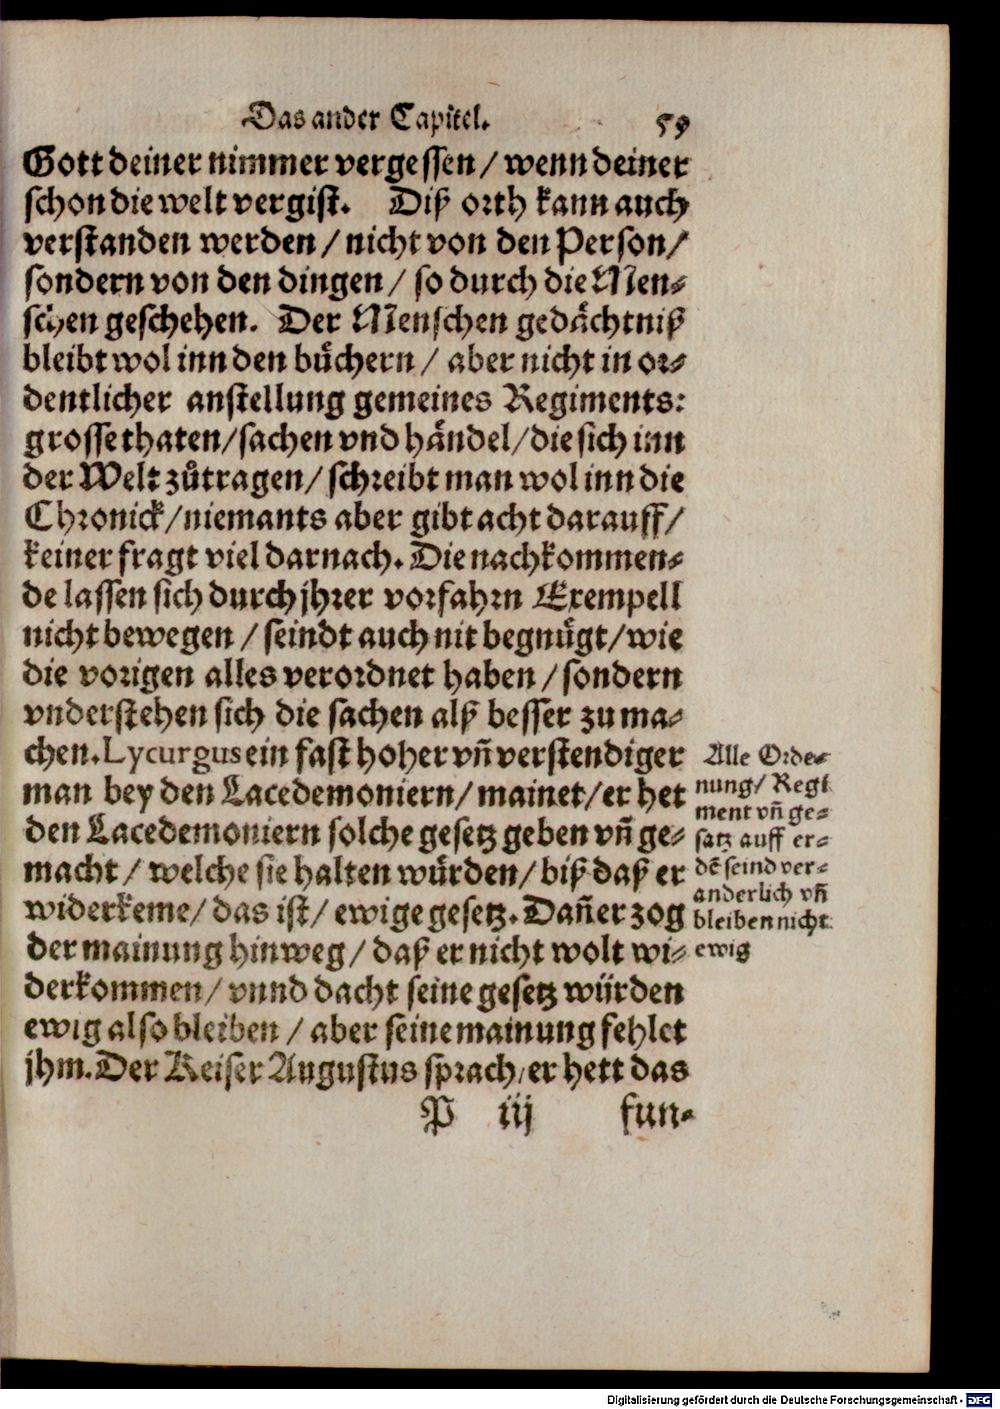 Das ander Capitel. 59
Gott deiner nimmer vergessen / wenn deiner
schon die welt vergist. Diß orth kann auch
verstanden werden / nicht von den Person /
sondern von den dingen / so durch die Men⸗
schen geschehen. Der Menschen gedaͤchtniß
bleibt wol inn den buͤchern / aber nicht in or⸗
dentlicher anstellung gemeines Regiments:
grosse thaten / sachen vnd haͤndel / die sich inn
der Welt zuͦtragen / schreibt man wol inn die
Chronick / niemants aber gibt acht darauff /
keiner fragt viel darnach. Die nachkommen⸗
de lassen sich durch jhrer vorfahrn Exempell
nicht bewegen / seindt auch nit begnuͤgt / wie
die vorigen alles verordnet haben / sondern
vnderstehen sich die sachen alß besser zu ma⸗
chen. Lycurgus ein fast hoher vñ verstendiger
man bey den Lacedemoniern / mainet / er het
den Lacedemoniern solche gesetz geben vñ ge⸗
macht / welche sie halten wuͤrden / biß daß er
widerkeme / das ist / ewige gesetz. Dañ er zog
der mainung hinweg / daß er nicht wolt wi⸗
derkommen / vnnd dacht seine gesetz wuͤrden
ewig also bleiben / aber seine mainung fehlet
jhm. Der Keiser Augustus sprach / er hett das
P iij fun⸗
Alle Orde⸗
nung / Regi
ment vñ ge⸗
satz auff er⸗
dẽ seind ver⸗
anderlich vñ
bleiben nicht
ewig
Digitalisierung gefördert durch die Deutsche Forschungsgemeinschaft - DFG